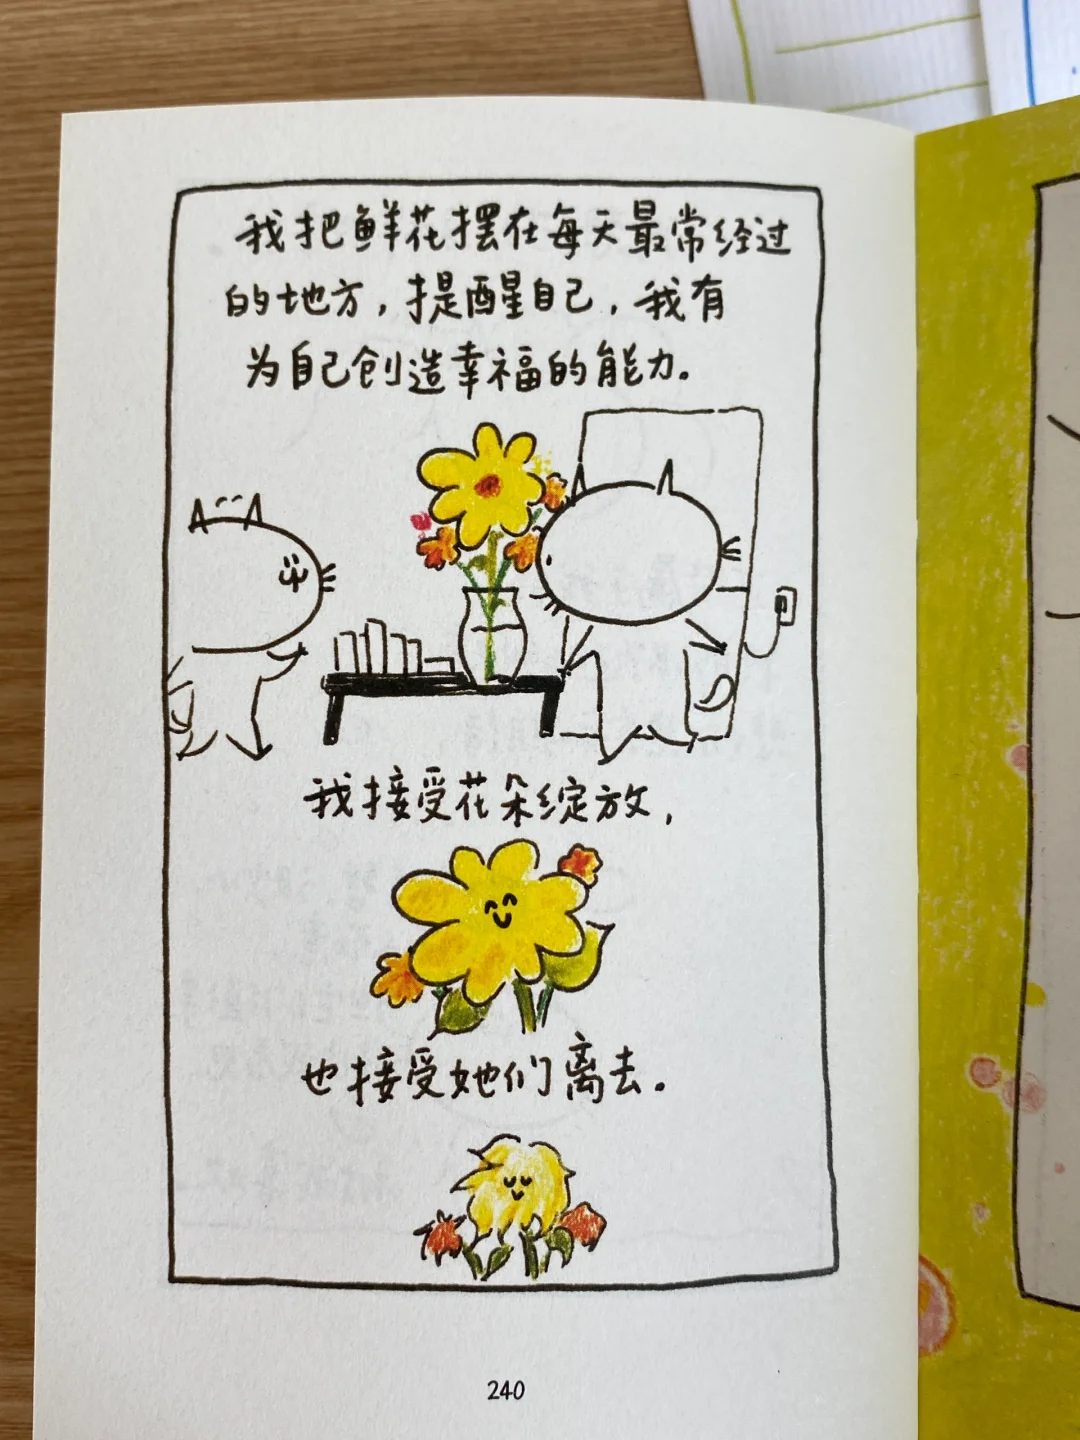 我把鲜花摆在每天最常经过
的地方，提醒自己，我有
为自己创造幸福的能力。
我接受花朵绽放，
也接受她们离去。
240